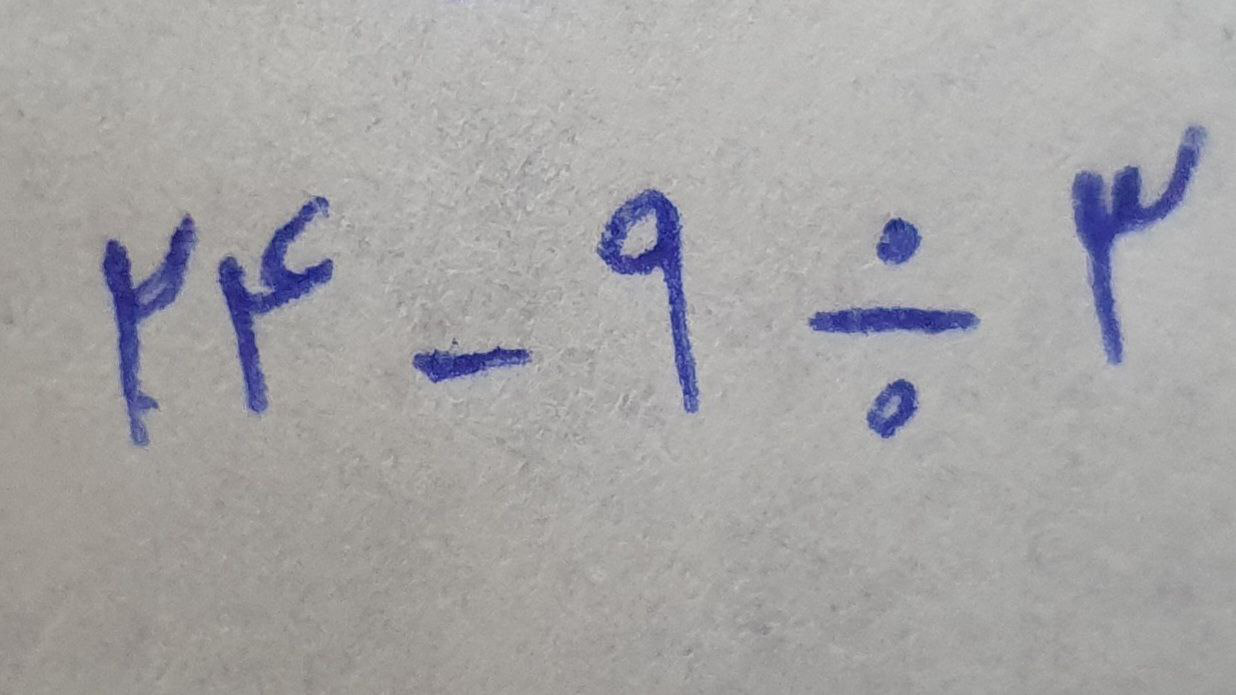 ۲۴ - ۹ ÷ ۳